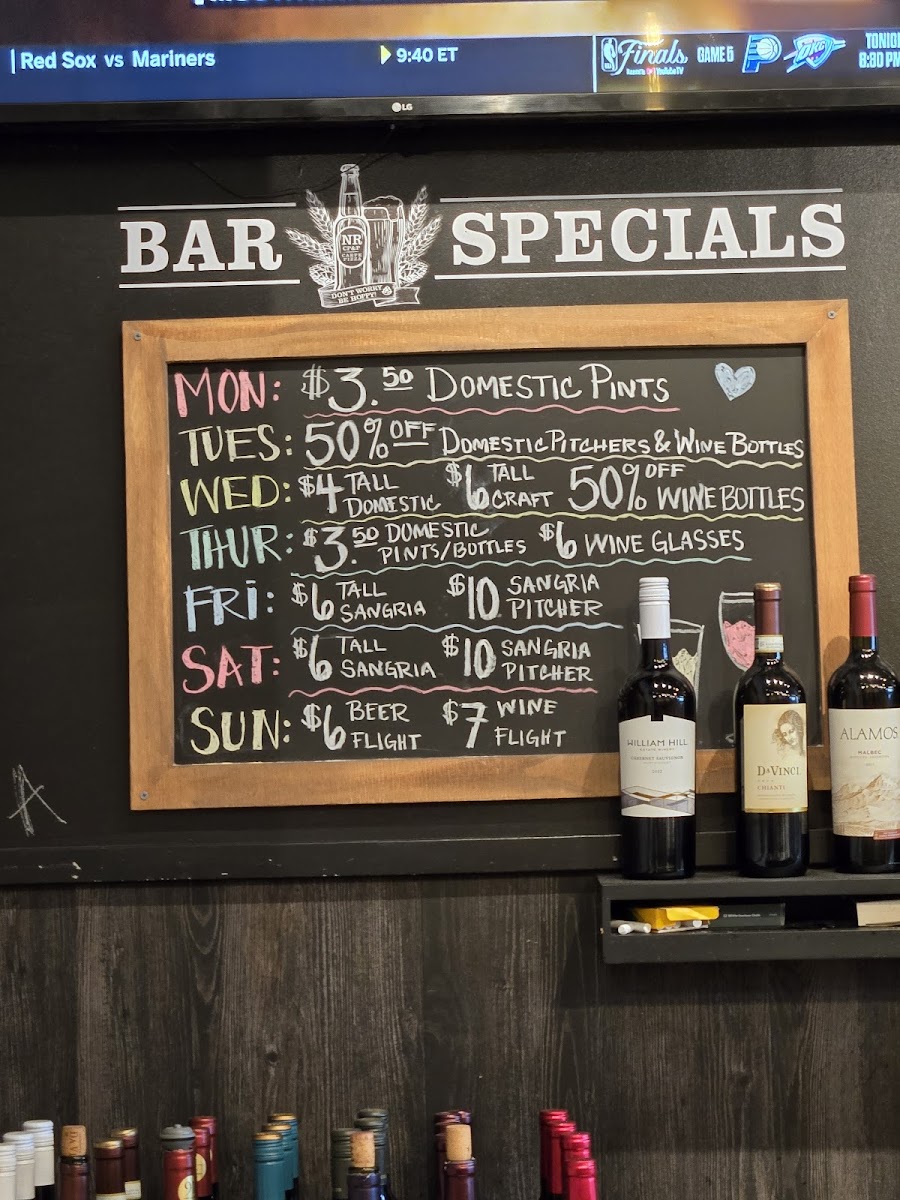 Red Sox vs Mariners 9:40 ET
NBA Finals GAME 5 TONIGHT
YouTubeTV 8:30 PM
LG
BAR SPECIALS
NR
CP&P
CRAFT PIZZA
DON'T WORRY
BE HOPPY!
MON: $3.50 DOMESTIC PINTS
TUES: 50% OFF DOMESTIC PITCHERS & WINE BOTTLES
WED: $4 TALL DOMESTIC $6 TALL CRAFT 50% OFF WINE BOTTLES
THUR: $3.50 DOMESTIC PINTS/BOTTLES $6 WINE GLASSES
FRI: $6 TALL SANGRIA $10 SANGRIA PITCHER
SAT: $6 TALL SANGRIA $10 SANGRIA PITCHER
SUN: $6 BEER FLIGHT $7 WINE FLIGHT
WILLIAM HILL
ESTATE WINERY
CABERNET SAUVIGNON
DaVinci
CHIANTI
ALAMOS
MALBEC